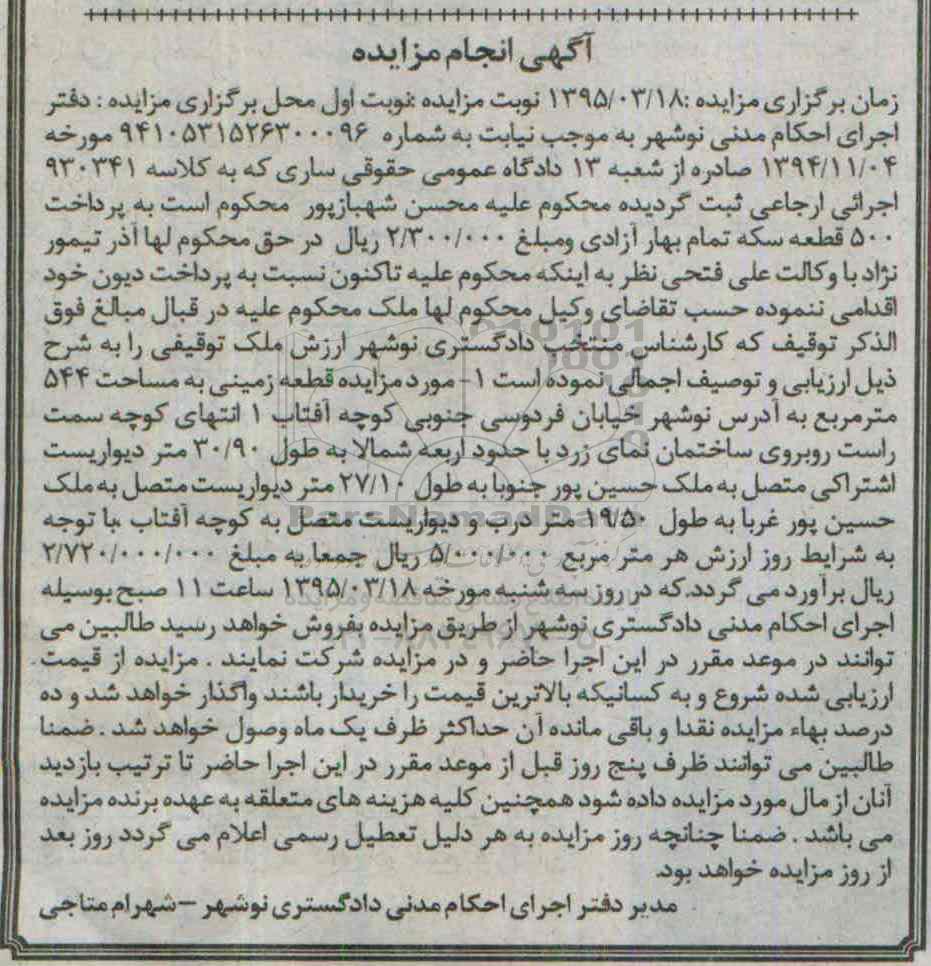 آگهی انجام مزایده
زمان برگزاری مزایده :۱۳۹۵/۰۳/۱۸ نوبت مزایده :نوبت اول محل برگزاری مزایده : دفتر
اجرای احکام مدنی نوشهر به موجب نیابت به شماره ۹۴۱۰۵۳۱۵۲۶۳۰۰۰۹۶ مورخه
۱۳۹۴/۱۱/۰۴ صادره از شعبه ۱۳ دادگاه عمومی حقوقی ساری که به کلاسه ۹۳۰۳۴۱
اجرائی ارجاعی ثبت گردیده محکوم علیه محسن شهبازپور محکوم است به پرداخت
۵۰۰ قطعه سکه تمام بهار آزادی ومبلغ ۲/۳۰۰/۰۰۰ ریال در حق محکوم لها آذر تیمور
نژاد با وکالت علی فتحی نظر به اینکه محکوم علیه تاکنون نسبت به پرداخت دیون خود
اقدامی ننموده حسب تقاضای وکیل محکوم لها ملک محکوم علیه در قبال مبالغ فوق
الذکر توقیف که کارشناس منتخب دادگستری نوشهر ارزش ملک توقیفی را به شرح
ذیل ارزیابی و توصیف اجمالی نموده است ۱- مورد مزایده قطعه زمینی به مساحت ۵۴۴
مترمربع به آدرس نوشهر خیابان فردوسی جنوبی کوچه آفتاب ۱ انتهای کوچه سمت
راست روبروی ساختمان نمای زرد با حدود اربعه شمالا به طول ۳۰/۹۰ متر دیواریست
اشتراکی متصل به ملک حسین پور جنوبا به طول ۲۷/۱۰ متر دیواریست متصل به ملک
حسین پور غربا به طول ۱۹/۵۰ متر درب و دیواریست متصل به کوچه آفتاب .با توجه
به شرایط روز ارزش هر متر مربع ۵/۰۰۰/۰۰۰ ریال جمعا به مبلغ ۲/۷۲۰/۰۰۰/۰۰۰
ریال برآورد می گردد.که در روز سه شنبه مورخه ۱۳۹۵/۰۳/۱۸ ساعت ۱۱ صبح بوسیله
اجرای احکام مدنی دادگستری نوشهر از طریق مزایده بفروش خواهد رسید طالبین می
توانند در موعد مقرر در این اجرا حاضر و در مزایده شرکت نمایند . مزایده از قیمت
ارزیابی شده شروع و به کسانیکه بالاترین قیمت را خریدار باشند واگذار خواهد شد و ده
درصد بهاء مزایده نقدا و باقی مانده آن حداکثر ظرف یک ماه وصول خواهد شد . ضمنا
طالبین می توانند ظرف پنج روز قبل از موعد مقرر در این اجرا حاضر تا ترتیب بازدید
آنان از مال مورد مزایده داده شود همچنین کلیه هزینه های متعلقه به عهده برنده مزایده
می باشد . ضمنا چنانچه روز مزایده به هر دلیل تعطیل رسمی اعلام می گردد روز بعد
از روز مزایده خواهد بود.
مدیر دفتر اجرای احکام مدنی دادگستری نوشهر -شهرام متاجی
ParsNamadData